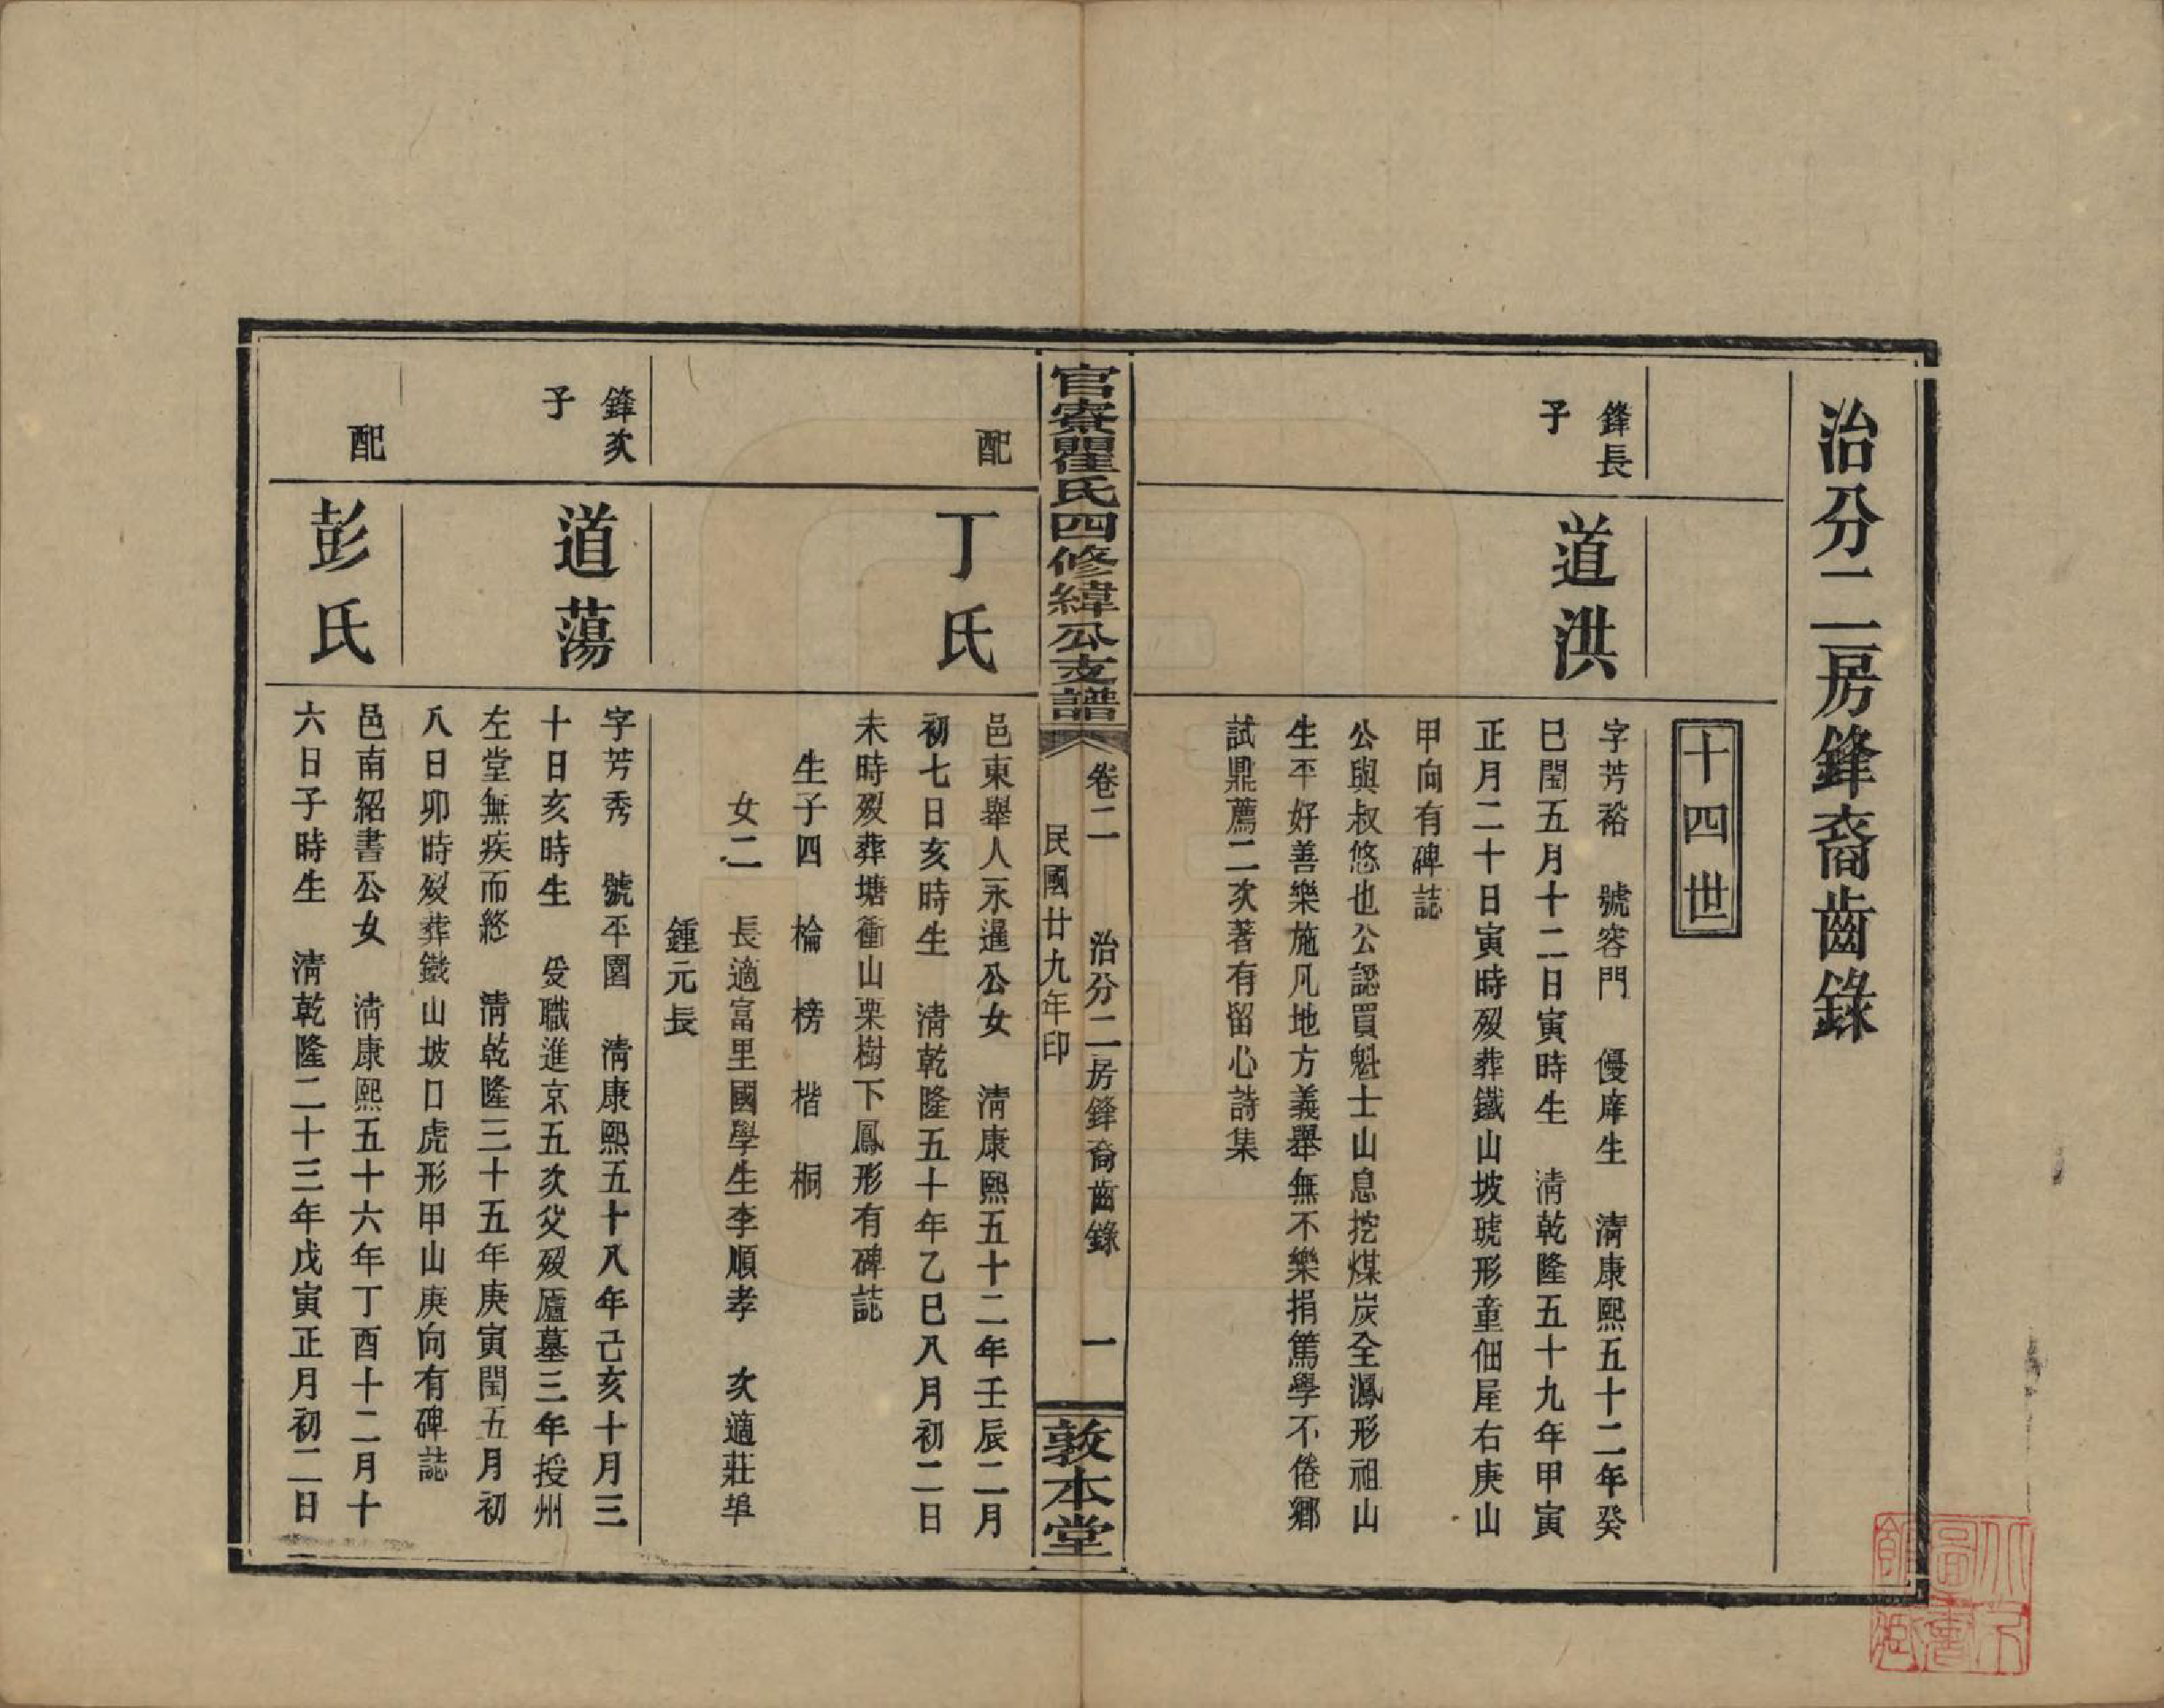 治分二房鋒裔齒錄
十四世
鋒長
子
道洪
字芳裕　號容門　優庠生　清康熙五十二年癸
巳閏五月十二日寅時生　清乾隆五十九年甲寅
正月二十日寅時歿葬鐵山坡琥形童佃屋右庚山
甲向有碑誌
公與叔悠也公認買魁士山息挖煤炭全鳳形祖山
生平好善樂施凡地方義舉無不樂捐篤學不倦鄉
試鼎薦二次著有留心詩集
官寮瞿氏四修緯公支譜
卷二　治分二房鋒裔齒錄　一
民國廿九年印
敦本堂
配
丁氏
邑東舉人永暹公女　清康熙五十二年壬辰二月
初七日亥時生　清乾隆五十年乙巳八月初二日
未時歿葬塘衝山栗樹下鳳形有碑誌
生子四　棆　榜　楷　桐
女二　長適富里國學生李順孝　次適莊埠
鍾元長
鋒次
子
道蕩
字芳秀　號平園　清康熙五十八年己亥十月三
十日亥時生　受職進京五次父歿廬墓三年授州
左堂無疾而終　清乾隆三十五年庚寅閏五月初
八日卯時歿葬鐵山坡口虎形甲山庚向有碑誌
配
彭氏
邑南紹書公女　清康熙五十六年丁酉十二月十
六日子時生　清乾隆二十三年戊寅正月初二日